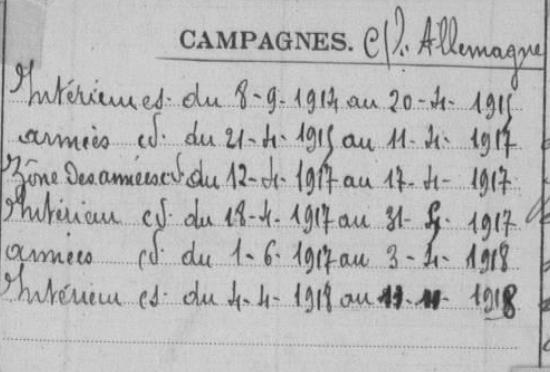 CAMPAGNES. C/. Allemagne
Intérieur cs. du 8-9-1914 au 20-4-1915
armées cs. du 21-4-1915 au 11-4-1917
Zône des armées cs. du 12-4-1917 au 17-4-1917
Intérieur cs. du 18-4-1917 au 31-5-1917
armées cs. du 1-6-1917 au 3-4-1918
Intérieur cs. du 4-4-1918 au 11-11-1918